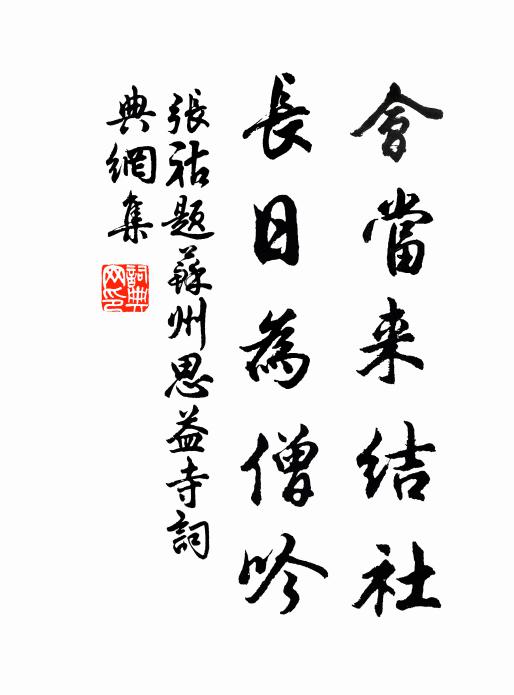 會當来結社
長日為僧吟
張祜題蘇州思益寺詞
典網集
詞典網印